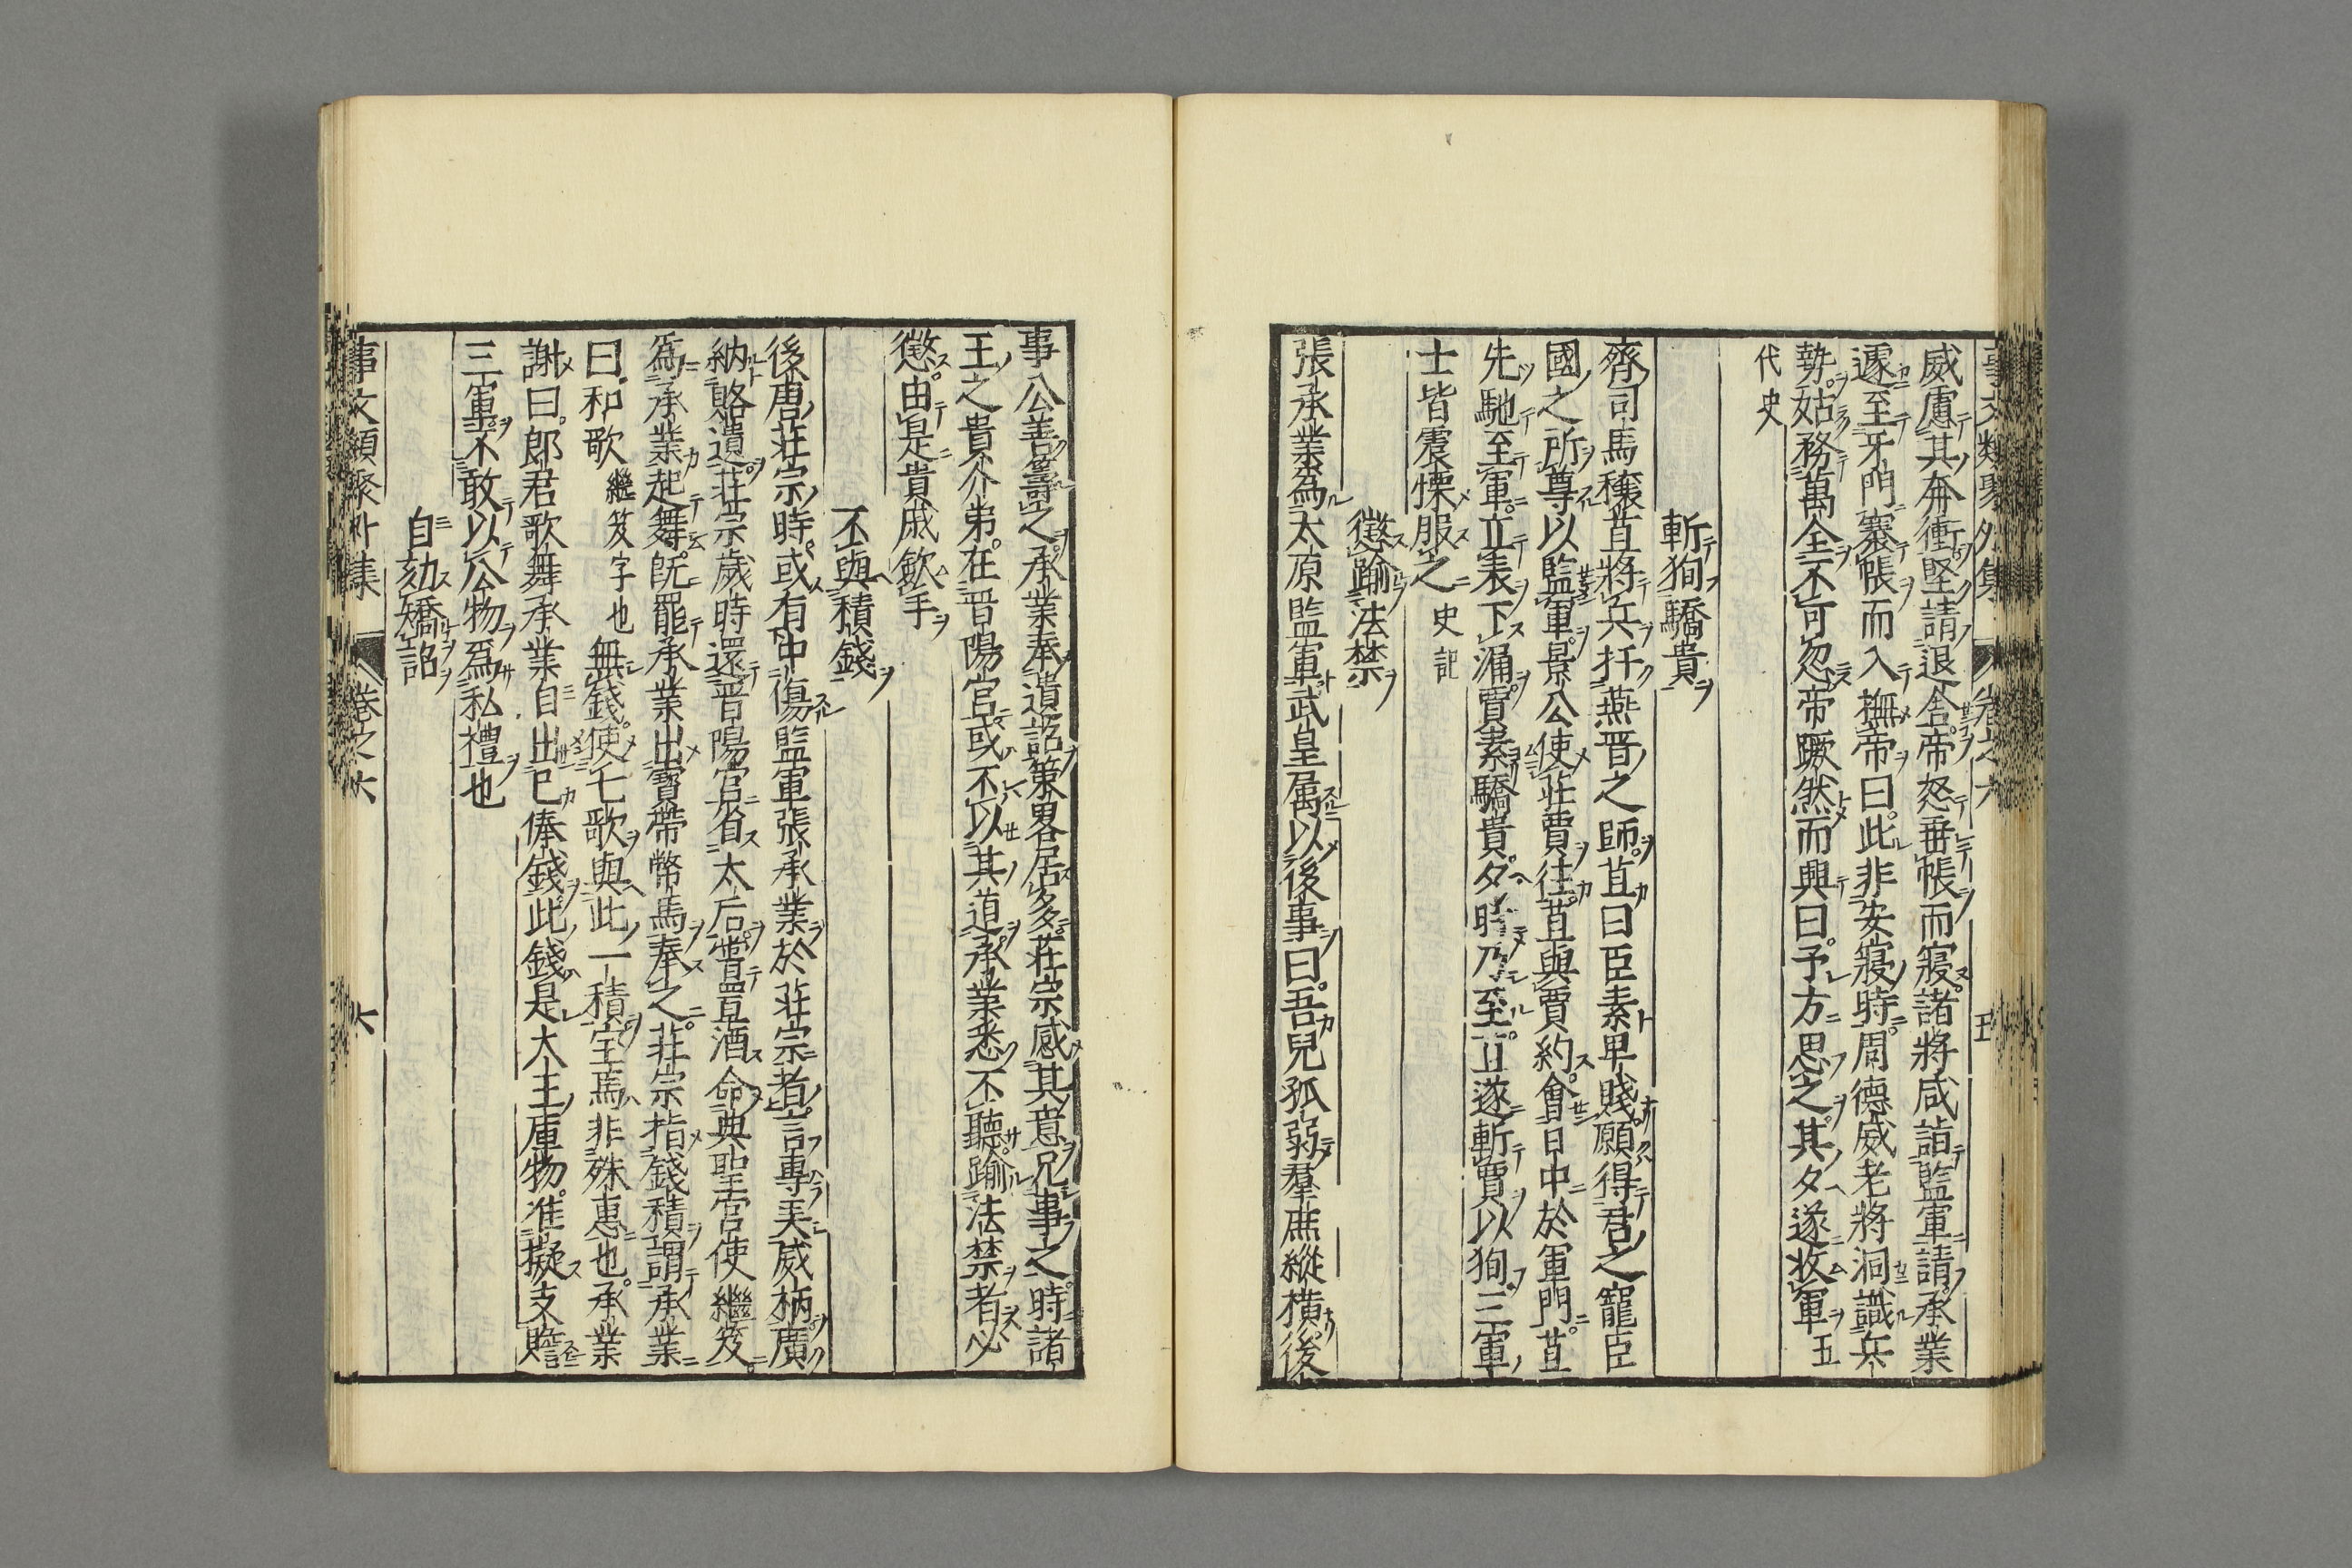 事文類聚外集 卷之六 五
威慮其奔衝堅請退舍帝怒垂帳而寢諸將咸詣監軍請承業
遽至牙門褰帳而入撫帝曰此非安寢時周德威老將洞識兵
勢姑務萬全不可忽帝蹶然而興曰予方思之其夕遂收軍五
代史
斬狥驕貴
齊司馬穰苴將兵扞燕晋之師苴曰臣素卑賤願得君之寵臣
國之所尊以監軍景公使莊賈往苴與賈約會日中於軍門苴
先馳至軍立表下漏賈素驕貴夕時乃至苴遂斬賈以狥三軍
士皆震慄服之 史記
懲踰法禁
張承業為太原監軍武皇属以後事曰吾兒孤弱羣庶縱橫後
事公善籌之承業奉遺詔策畧居多莊宗感其意兄事之時諸
王之貴介弟在晋陽宮或不以其道承業悉不聽踰法禁者必
懲由是貴戚歛手
不與積錢
後唐莊宗時或有中傷監軍張承業於莊宗者言專美威柄廣
納賂遺莊宗歲時還晋陽宮省太后嘗置酒命典聖宮使繼笈
為承業起舞既罷承業出寳帶幣馬奉之莊宗指錢積謂承業
曰和歌 繼笈字也 無錢使七歌與此一積宝焉非殊惠也承業
謝曰郎君歌舞承業自出己俸錢此錢是大王庫物准擬支贍
三軍不敢以公物爲私禮也
自劾矯詔
事文類聚外集 卷之六 六